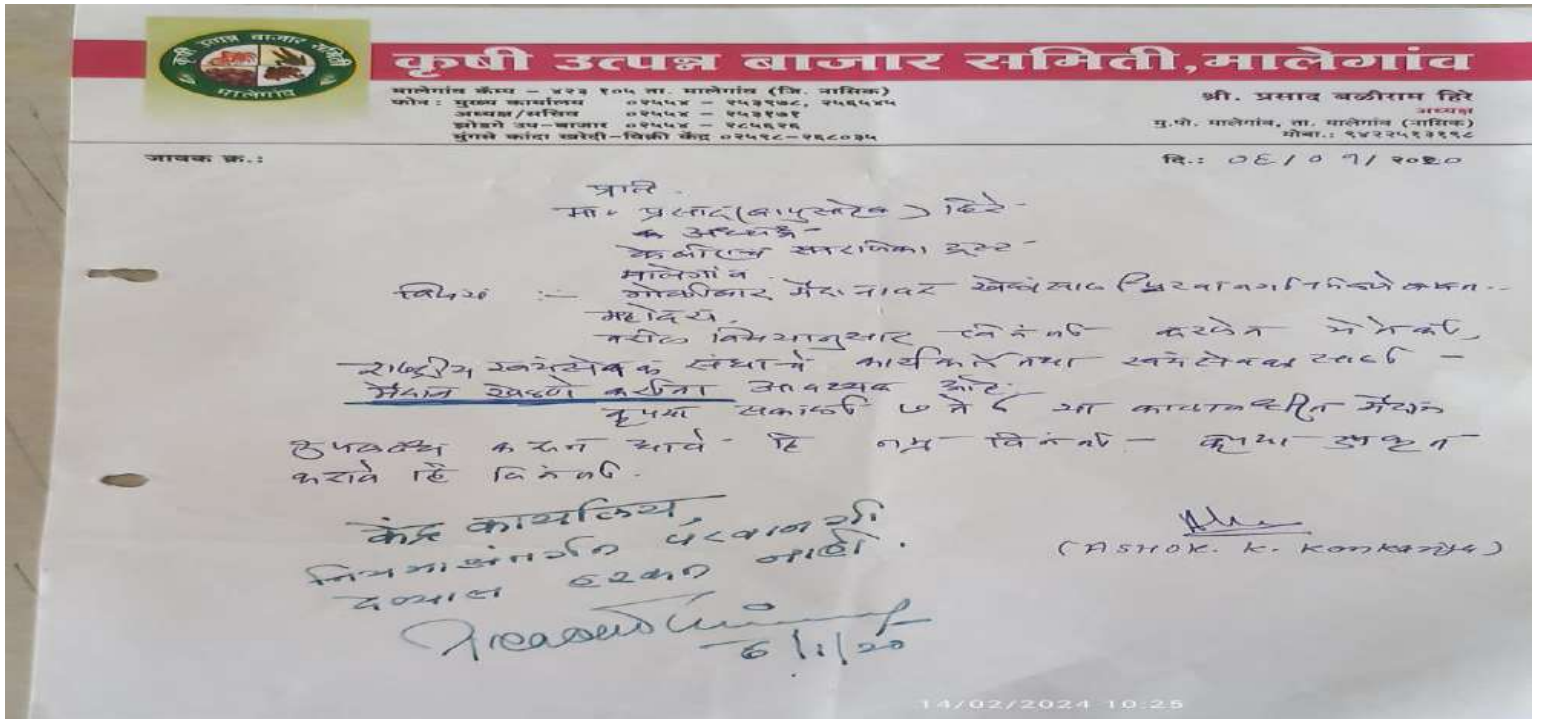 कृषी उत्पन्न बाजार समिती
मालेगांव
कृषी उत्पन्न बाजार समिती,मालेगांव
मालेगांव कॅम्प – ४२३ १०५ ता. मालेगांव (जि. नासिक)
फोन : मुख्य कार्यालय ०२५५४ – २५३१७८, २५६५४५
अध्यक्ष/सचिव ०२५५४ – २५३१७१
झोडगे उप–बाजार ०२५५४ – २८५६२६
मुंगसे कांदा खरेदी–विक्री केंद्र ०२५९८–२६८०३५
श्री. प्रसाद बळीराम हिरे
अध्यक्ष
मु.पो. मालेगांव, ता. मालेगांव (नासिक)
मोबा.: ९४२२५१३११८
जावक क्र.:
दि.: ०६/०१/२०२०
प्रति
मा. प्रसाद(बापुसाहेब) हिरे-
अध्यक्ष-
स्मरणिका ट्रस्ट-
मालेगांव.
विषय :-
महोदय,
वरील विषयानुसार विनंती करणेत येते की,
राष्ट्रीय स्वयंसेवक संघाचे कार्यकर्ते तथा स्वयंसेवका साठी -
मैदान खेळणे करीता आवश्यक आहे.
कृपया सकाळी ७ ते ८ या कालावधीत मैदान
उपलब्ध करून द्यावे - हि नम्र विनंती - कृपया उपकृत
करावे हि विनंती.
केंद्र कार्यालय,
नियमाअंतर्गत परवानगी
देण्यास हरकत नाही.
(ASHOK. K. Konkaniya)
6/1/20
14/02/2024 10:25